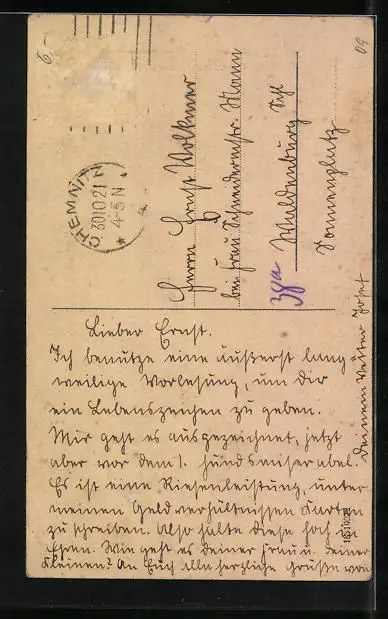 6,-
09
CHEMNITZ
30.10.21
4-5 N
Herrn Ernst Volkmar
bei Frau Schneidermstr. Mann
Waldenburg Sch
Sonnenplatz
38a
Lieber Ernst.
Ich benutze eine äußerst lang-
weilige Vorlesung, um Dir
ein Lebenszeichen zu geben.
Mir geht es ausgezeichnet, jetzt
aber vor dem 1. hundsmiserabel.
Es ist eine Riesenleistung, unter
meinen Geldverhältnissen Karten
zu schreiben. Also halte diese hoch in
Ehren. Wie geht es deiner Frau u. deiner
Kleinen? An Euch alle herzliche Grüße von
Deinem Vetter Josef